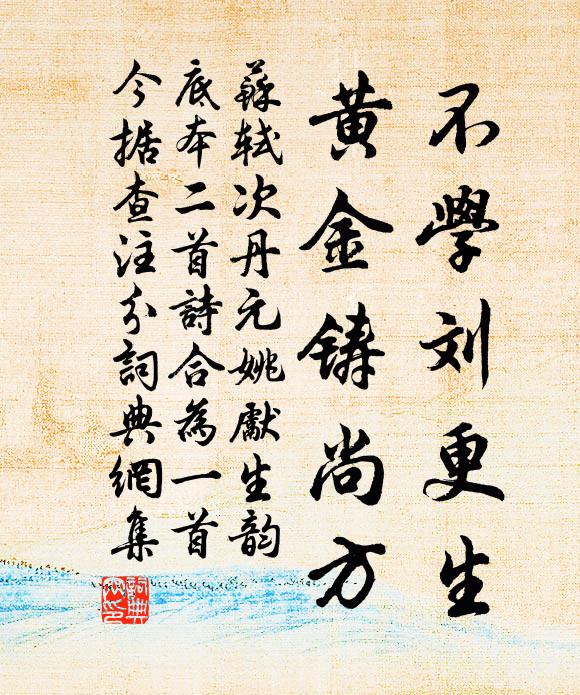 不學刘更生
黄金铸尚方
蘇軾次丹元姚獻生韵
底本二首詩合為一首
今据查注分詞典網集